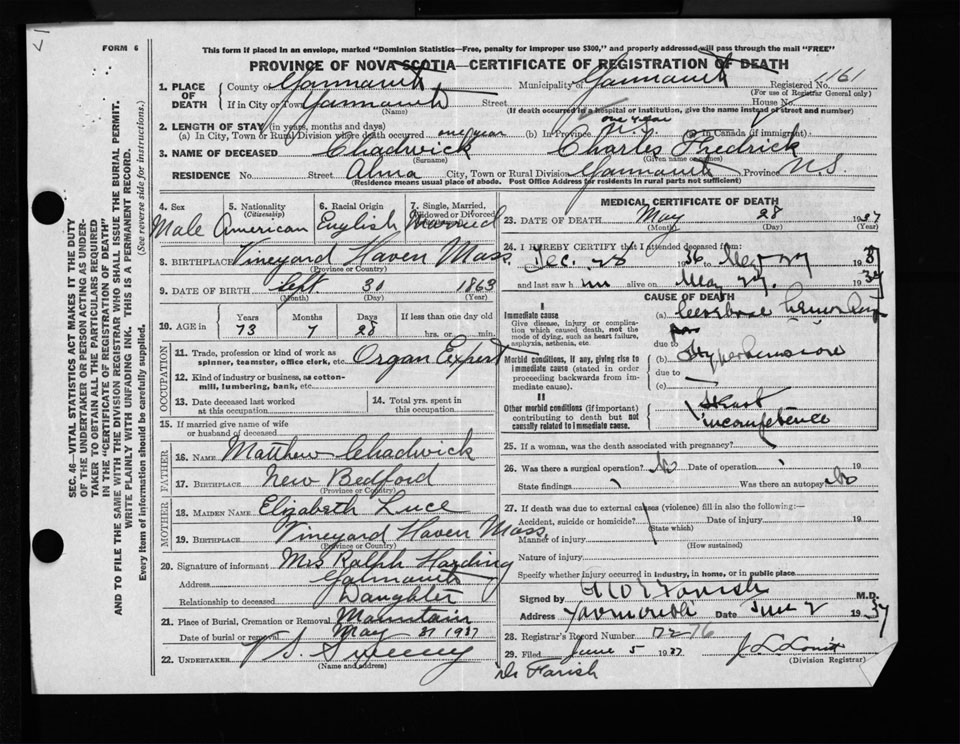 FORM 6
This form if placed in an envelope, marked "Dominion Statistics—Free, penalty for improper use $300," and properly addressed will pass through the mail "FREE"
PROVINCE OF NOVA SCOTIA—CERTIFICATE OF REGISTRATION OF DEATH
SEC. 46—VITAL STATISTICS ACT MAKES IT THE DUTY
OF THE UNDERTAKER OR PERSON ACTING AS UNDER-
TAKER TO OBTAIN ALL THE PARTICULARS REQUIRED
IN THE "CERTIFICATE OF REGISTRATION OF DEATH"
AND TO FILE THE SAME WITH THE DIVISION REGISTRAR WHO SHALL ISSUE THE BURIAL PERMIT.
WRITE PLAINLY WITH UNFADING INK. THIS IS A PERMANENT RECORD.
Every item of information should be carefully supplied. (See reverse side for instructions.)
1. PLACE OF DEATH
County of Yarmouth Municipality of Yarmouth Registered No. 1161
(For use of Registrar General only)
If in City or Town Yarmouth Street House No.
(Name) (If death occurred in a hospital or institution, give the name instead of street and number)
2. LENGTH OF STAY (in years, months and days)
(a) In City, Town or Rural Division where death occurred one year (b) In Province one year (c) In Canada (if immigrant)
3. NAME OF DECEASED Chadwick Charles Fredrick
(Surname) (Given name or names)
RESIDENCE No. Street Alma City, Town or Rural Division Yarmouth Province N.S.
(Residence means usual place of abode. Post Office Address for residents in rural parts not sufficient)
4. Sex Male
5. Nationality (Citizenship) American
6. Racial Origin English
7. Single, Married, Widowed or Divorced Married
8. BIRTHPLACE Vineyard Haven Mass
(Province or Country)
9. DATE OF BIRTH Sept. 30 1863
(Month) (Day) (Year)
10. AGE in Years 73 Months 7 Days 28 If less than one day
hrs. or min.
OCCUPATION
11. Trade, profession or kind of work as spinner, teamster, office clerk, etc. Organ Expert
12. Kind of industry or business, as cotton-mill, lumbering, bank, etc.
13. Date deceased last worked at this occupation
14. Total yrs. spent in this occupation
15. If married give name of wife or husband of deceased
FATHER
16. NAME Matthew Chadwick
17. BIRTHPLACE New Bedford
(Province or Country)
MOTHER
18. MAIDEN NAME Elizabeth Luce
19. BIRTHPLACE Vineyard Haven Mass
(Province or Country)
20. Signature of informant Mrs Ralph Harding
Address Yarmouth
Relationship to deceased Daughter
21. Place of Burial, Cremation or Removal Mountain
Date of burial or removal May 31 1937
22. UNDERTAKER V S. Sweeny
(Name and address)
MEDICAL CERTIFICATE OF DEATH
23. DATE OF DEATH May 28 1937
(Month) (Day) (Year)
24. I HEREBY CERTIFY that I attended deceased from:
Dec. 28 1936 to May 27 1937
and last saw him alive on May 27. 1937
CAUSE OF DEATH
I
Immediate cause
Give disease, injury or complication which caused death, not the mode of dying, such as heart failure, asphyxia, asthenia, etc.
(a) Cerebral hemorrhage
due to
Morbid conditions, if any, giving rise to immediate cause (stated in order proceeding backwards from immediate cause).
(b) Hypertension
due to
(c)
II
Other morbid conditions (if important) contributing to death but not causally related to immediate cause.
Heart
incompetence
25. If a woman, was the death associated with pregnancy?
26. Was there a surgical operation? No Date of operation 19
State findings Was there an autopsy No
27. If death was due to external causes (violence) fill in also the following:—
Accident, suicide or homicide? Date of injury 19
(State which)
Manner of injury
(How sustained)
Nature of injury
Specify whether injury occurred in industry, in home, or in public place
Signed by Farish M.D.
Address Yarmouth Date June 2 1937
28. Registrar's Record Number
29. Filed June 5 1937
(Division Registrar)
Dr Farish